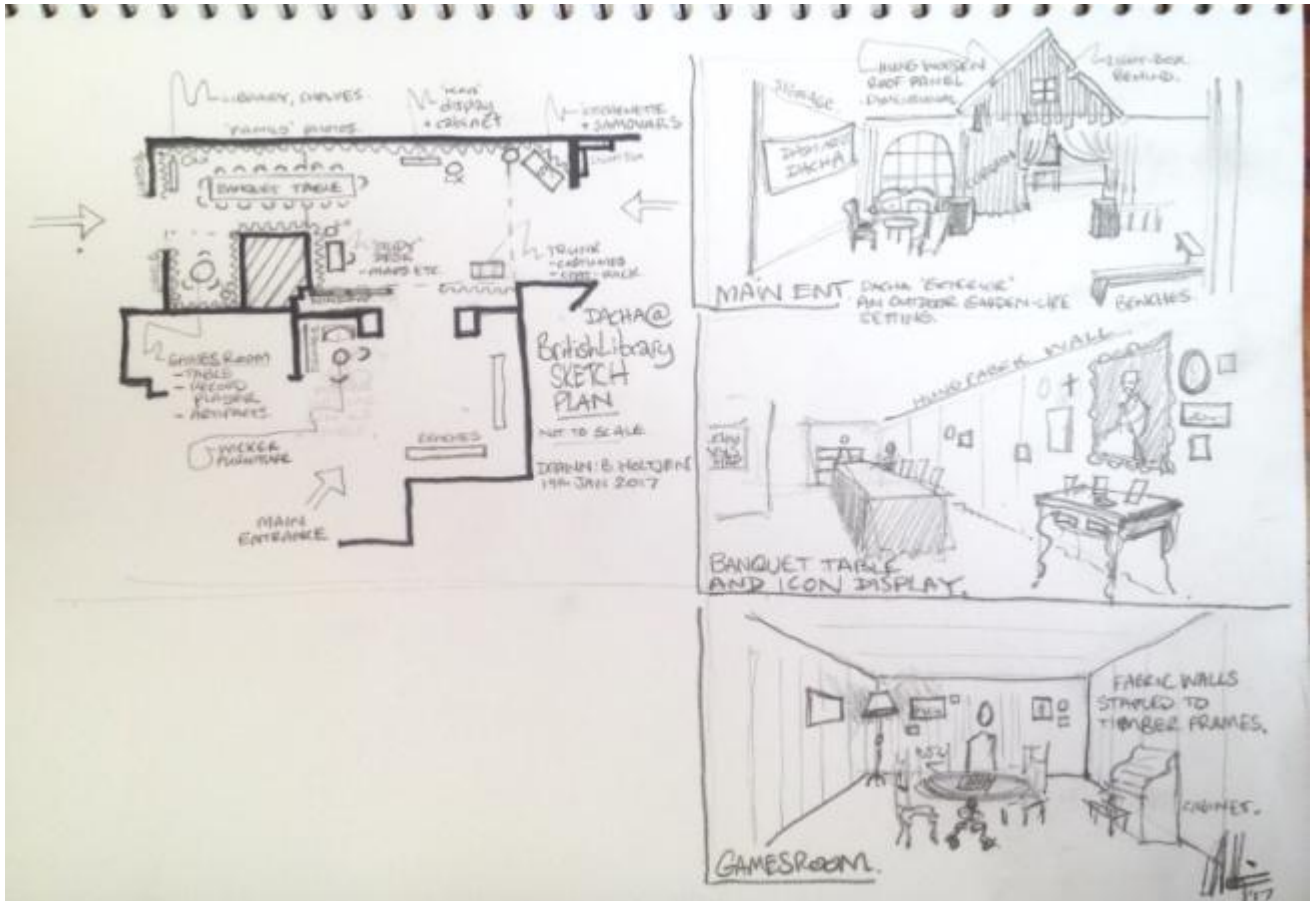 LIBRARY, SHELVES.
"FAMILY" PHOTOS.
display
+ cabinet
KITCHENETTE
+ SAMOVARS
BANQUET TABLE
"STUDY"
DESK
- MAPS ETC.
TRUNK
- COSTUMES
- COAT-RACK
GAMES ROOM
- TABLE
- RECORD
PLAYER
- ARTIFACTS
WICKER
FURNITURE
BENCHES
MAIN
ENTRANCE
DACHA@
British Library
SKETCH
PLAN
NOT TO SCALE
DRAWN: B. HOLTJEN
19th JAN 2017
HUNG WOODEN
ROOF PANEL
DIMENSIONAL
LIGHT-BOX
BEHIND.
SIGNAGE
DACHA
CURTAINS
MAIN ENT.
DACHA "EXTERIOR"
AN OUTDOOR GARDEN-LIKE
SETTING.
BENCHES.
HUNG FABRIC WALL
BANQUET TABLE
AND ICON DISPLAY.
FABRIC WALLS
STAPLED TO
TIMBER FRAMES.
CABINET.
GAMESROOM.